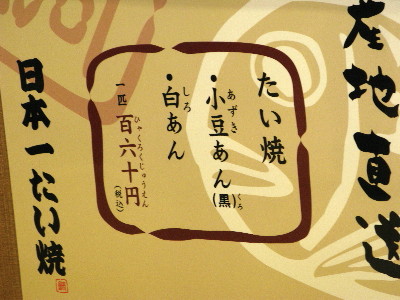 産地直送
たい焼
・小豆あん(黒)
あずき
くろ
・白あん
しろ
一匹 百六十円(税込)
ひゃくろくじゅうえん
日本一たい焼